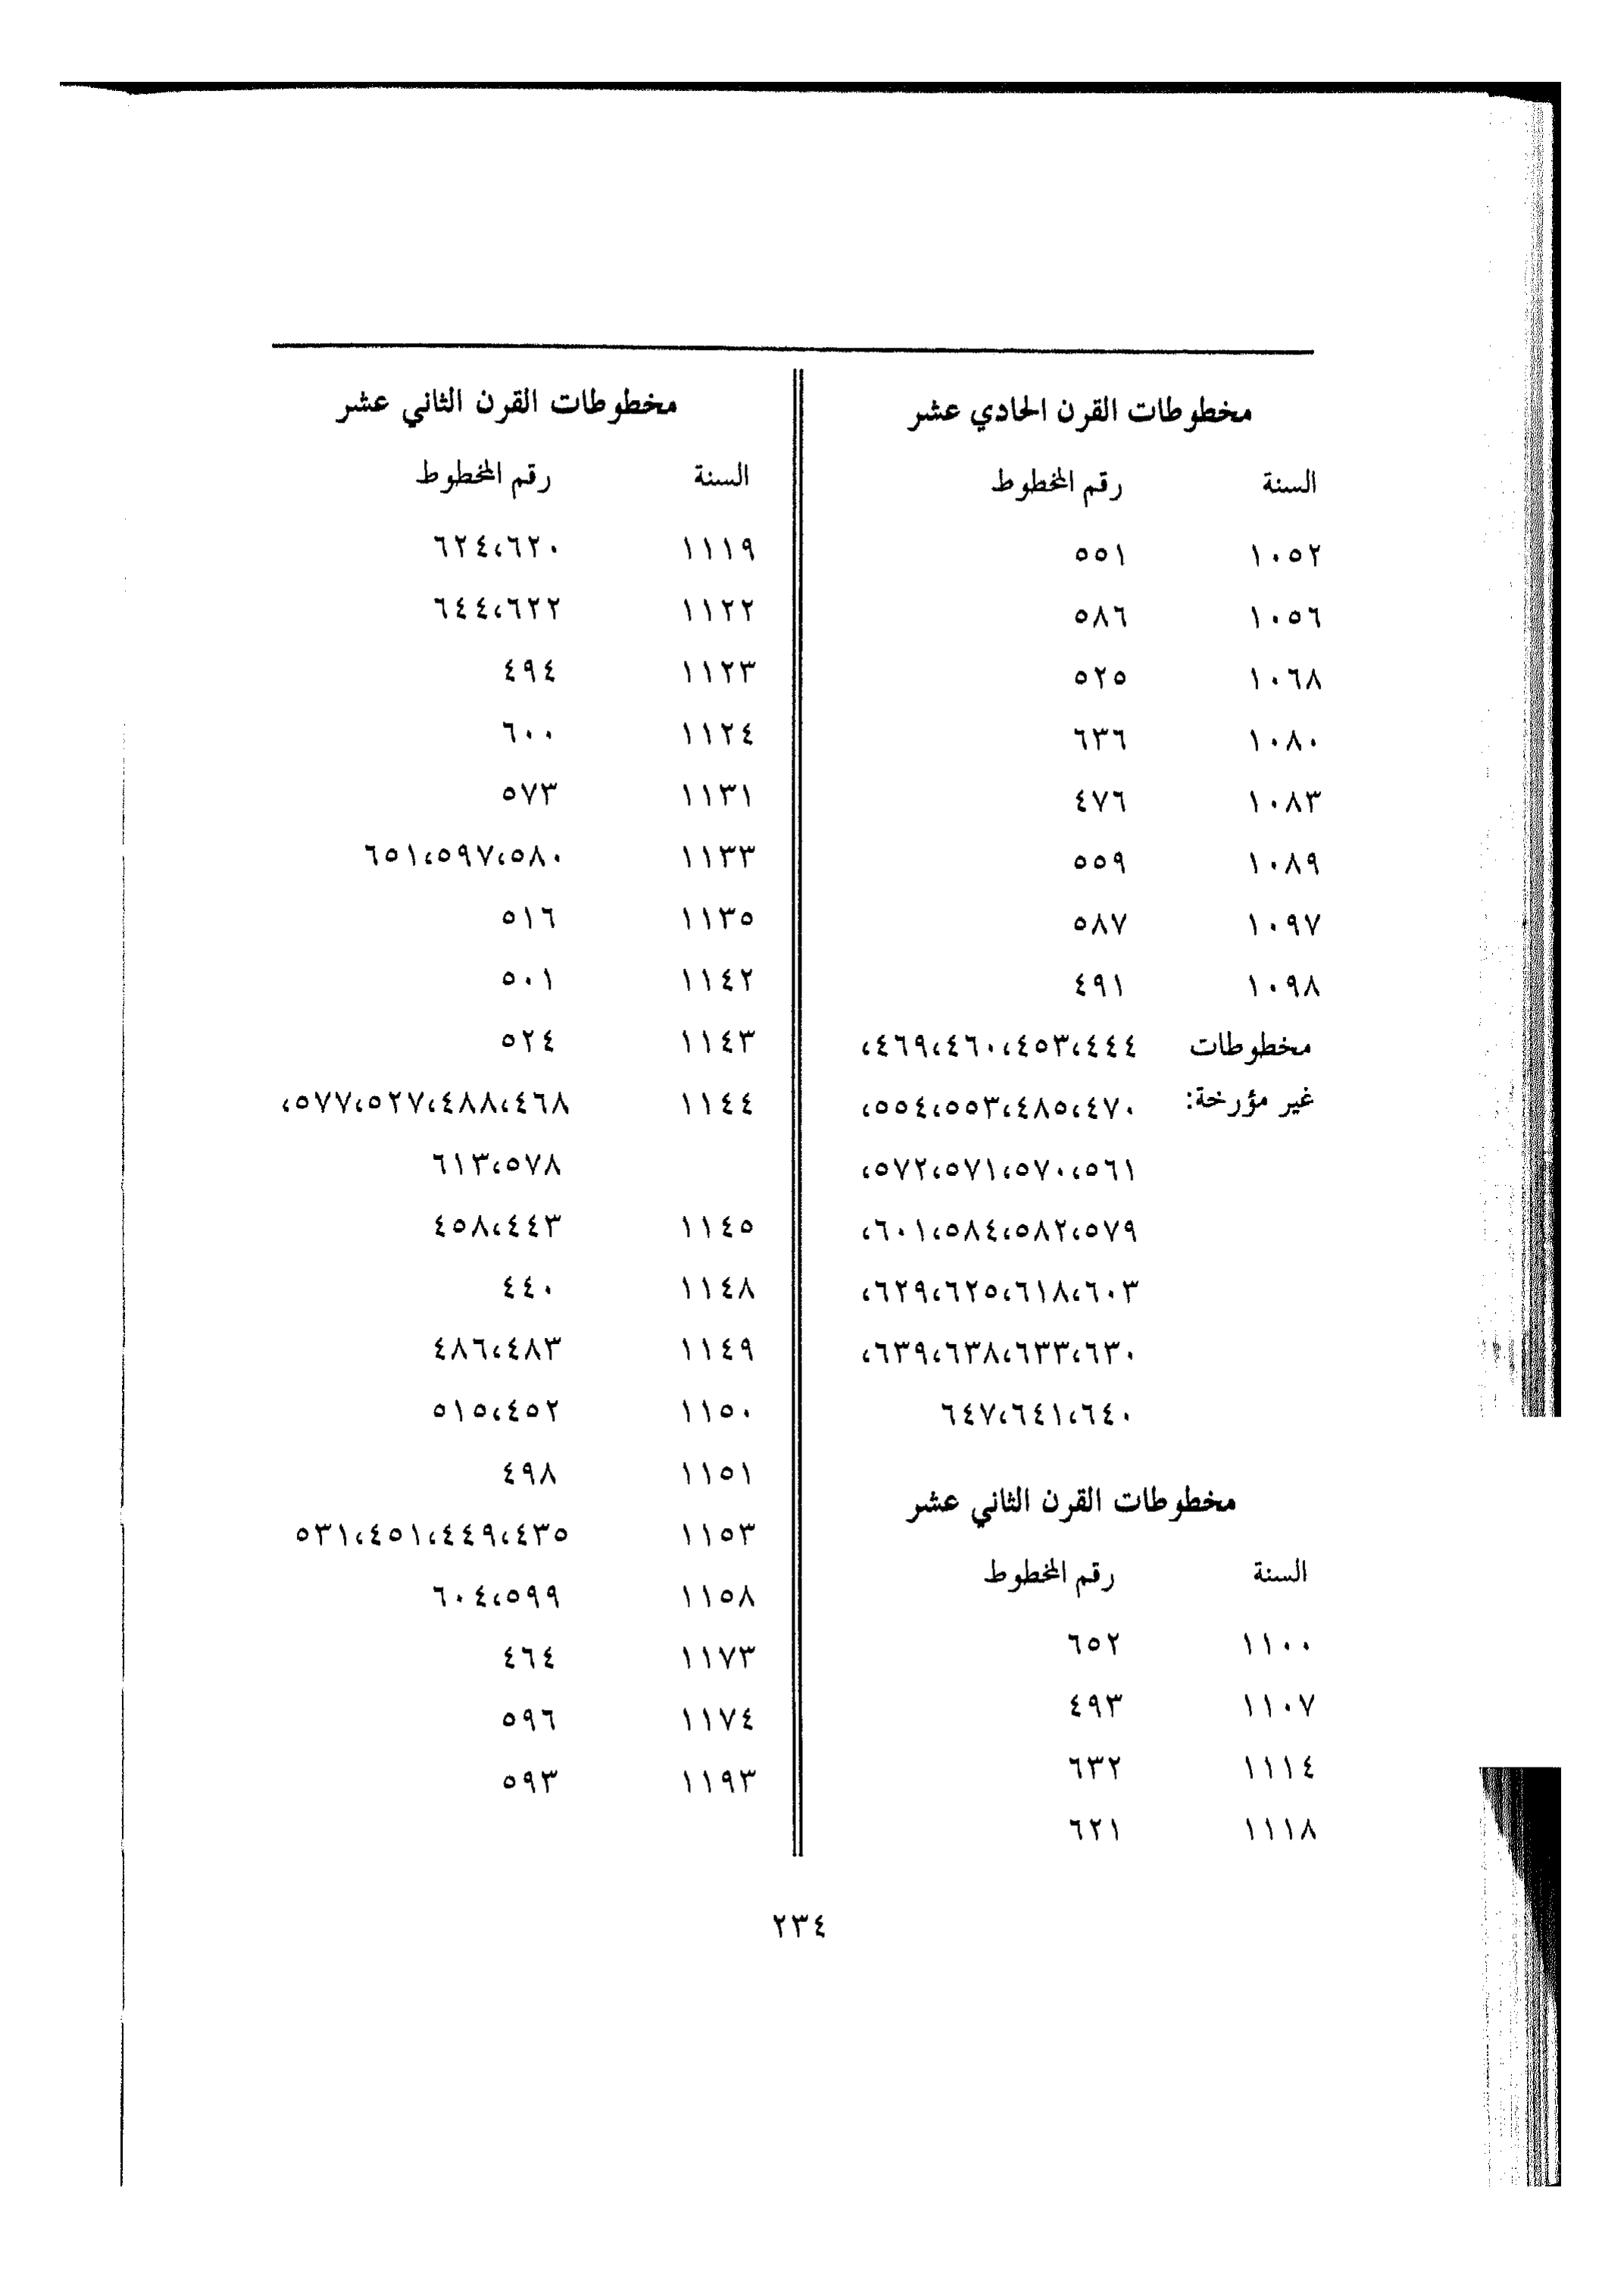 مخطوطات القرن الحادي عشر
السنة رقم المخطوط
١٠٥٢ ٥٥١
١٠٥٦ ٥٨٦
١٠٦٨ ٥٢٥
١٠٨٠ ٦٣٦
١٠٨٣ ٤٧٦
١٠٨٩ ٥٥٩
١٠٩٧ ٥٨٧
١٠٩٨ ٤٩١
مخطوطات ٤٤٤،٤٥٣،٤٦٠،٤٦٩،
غير مؤرخة: ٤٧٠،٤٨٥،٥٥٣،٥٥٤،
٥٦١،٥٧٠،٥٧١،٥٧٢،
٥٧٩،٥٨٢،٥٨٤،٦٠١،
٦٠٣،٦١٨،٦٢٥،٦٢٩،
٦٣٠،٦٣٣،٦٣٨،٦٣٩،
٦٤٠،٦٤١،٦٤٧
مخطوطات القرن الثاني عشر
السنة رقم المخطوط
١١٠٠ ٦٥٢
١١٠٧ ٤٩٣
١١١٤ ٦٣٢
١١١٨ ٦٢١
مخطوطات القرن الثاني عشر
السنة رقم المخطوط
١١١٩ ٦٢٠،٦٢٤
١١٢٢ ٦٢٢،٦٤٤
١١٢٣ ٤٩٤
١١٢٤ ٦٠٠
١١٣١ ٥٧٣
١١٣٣ ٥٨٠،٥٩٧،٦٥١
١١٣٥ ٥١٦
١١٤٢ ٥٠١
١١٤٣ ٥٢٤
١١٤٤ ٤٦٨،٤٨٨،٥٢٧،٥٧٧،
٥٧٨،٦١٣
١١٤٥ ٤٤٣،٤٥٨
١١٤٨ ٤٤٠
١١٤٩ ٤٨٣،٤٨٦
١١٥٠ ٤٥٢،٥١٥
١١٥١ ٤٩٨
١١٥٣ ٤٣٥،٤٤٩،٤٥١،٥٣١
١١٥٨ ٥٩٩،٦٠٤
١١٧٣ ٤٦٤
١١٧٤ ٥٩٦
١١٩٣ ٥٩٣
٢٣٤